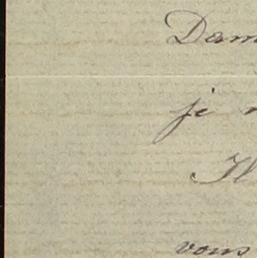 Dam
je n
Il
vous